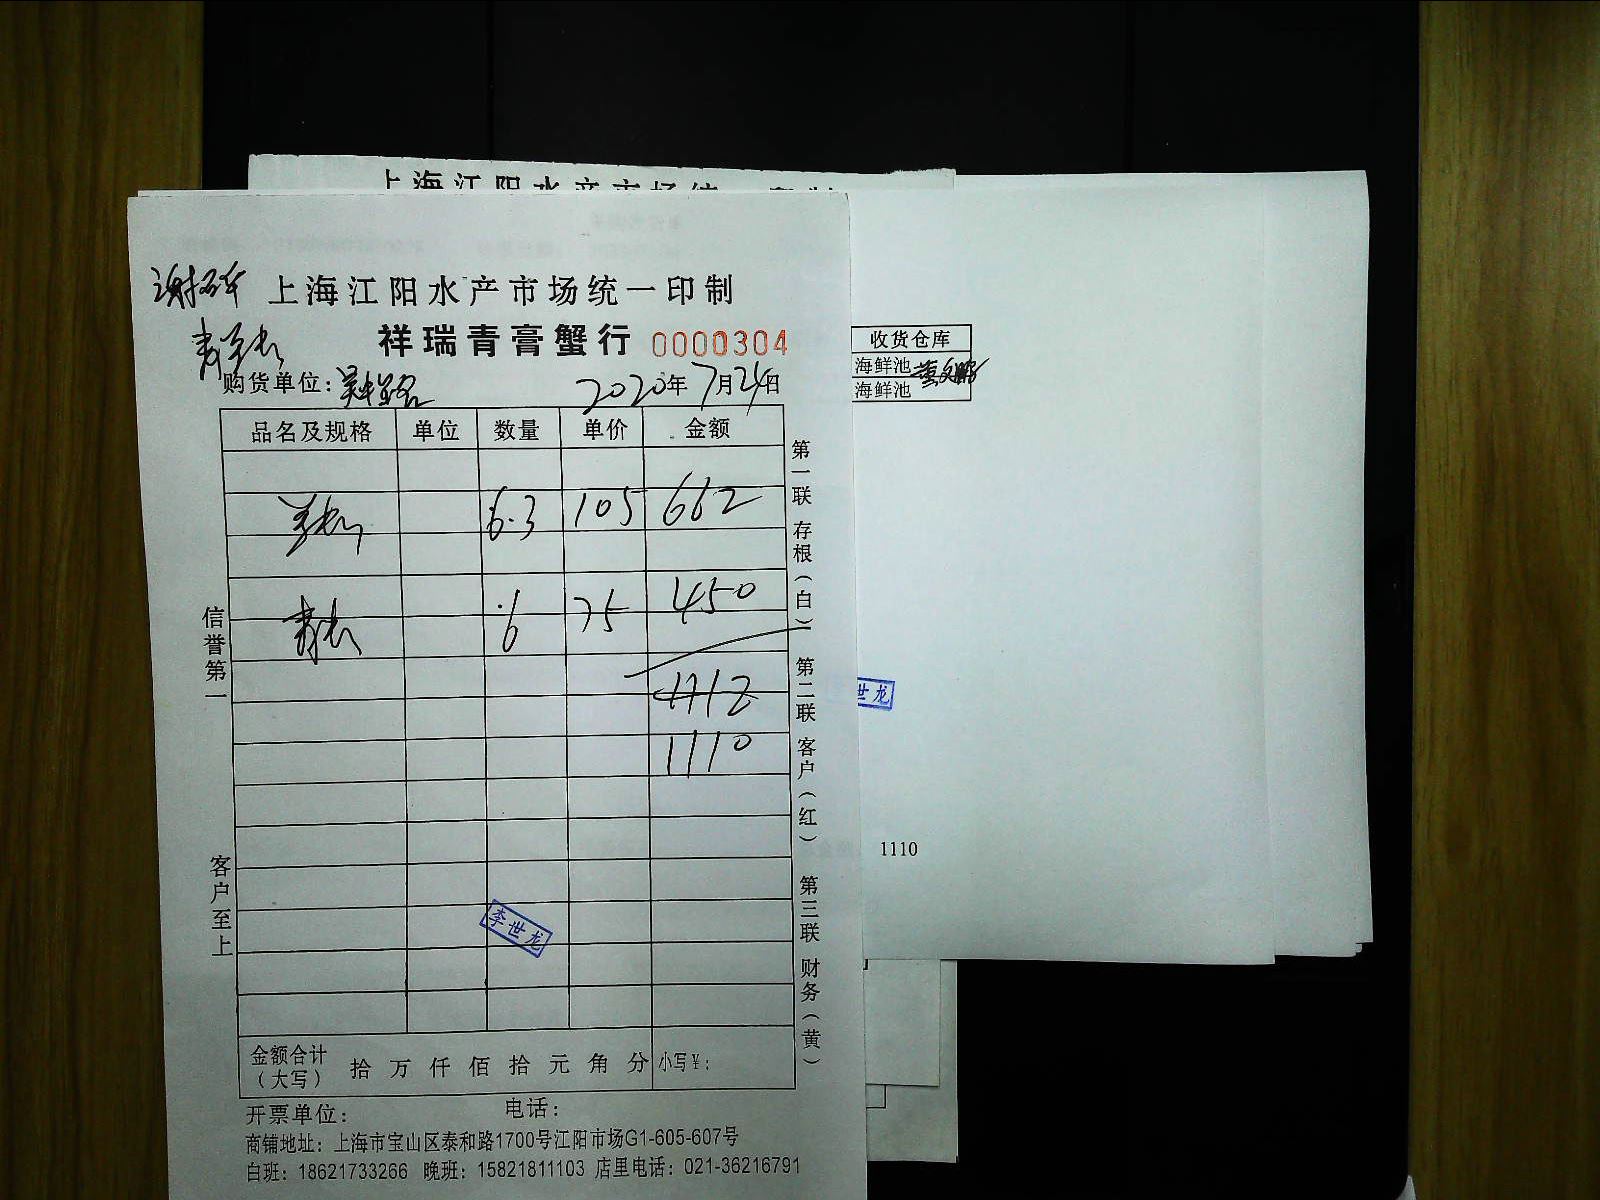 上海江阳水产市场统一印制
上海江阳水产市场统一印制
祥瑞青膏蟹行 0000304
购货单位：
2020年7月24日
品名及规格 单位 数量 单价 金额
6.3 105 662
6 75 450
1112
1110
金额合计（大写） 拾 万 仟 佰 拾 元 角 分 小写¥：
开票单位： 电话：
商铺地址：上海市宝山区泰和路1700号江阳市场G1-605-607号
白班：18621733266 晚班：15821811103 店里电话：021-36216791
信誉第一
客户至上
第一联 存根（白） 第二联 客户（红） 第三联 财务（黄）
李世龙
收货仓库
海鲜池
海鲜池
世龙
1110